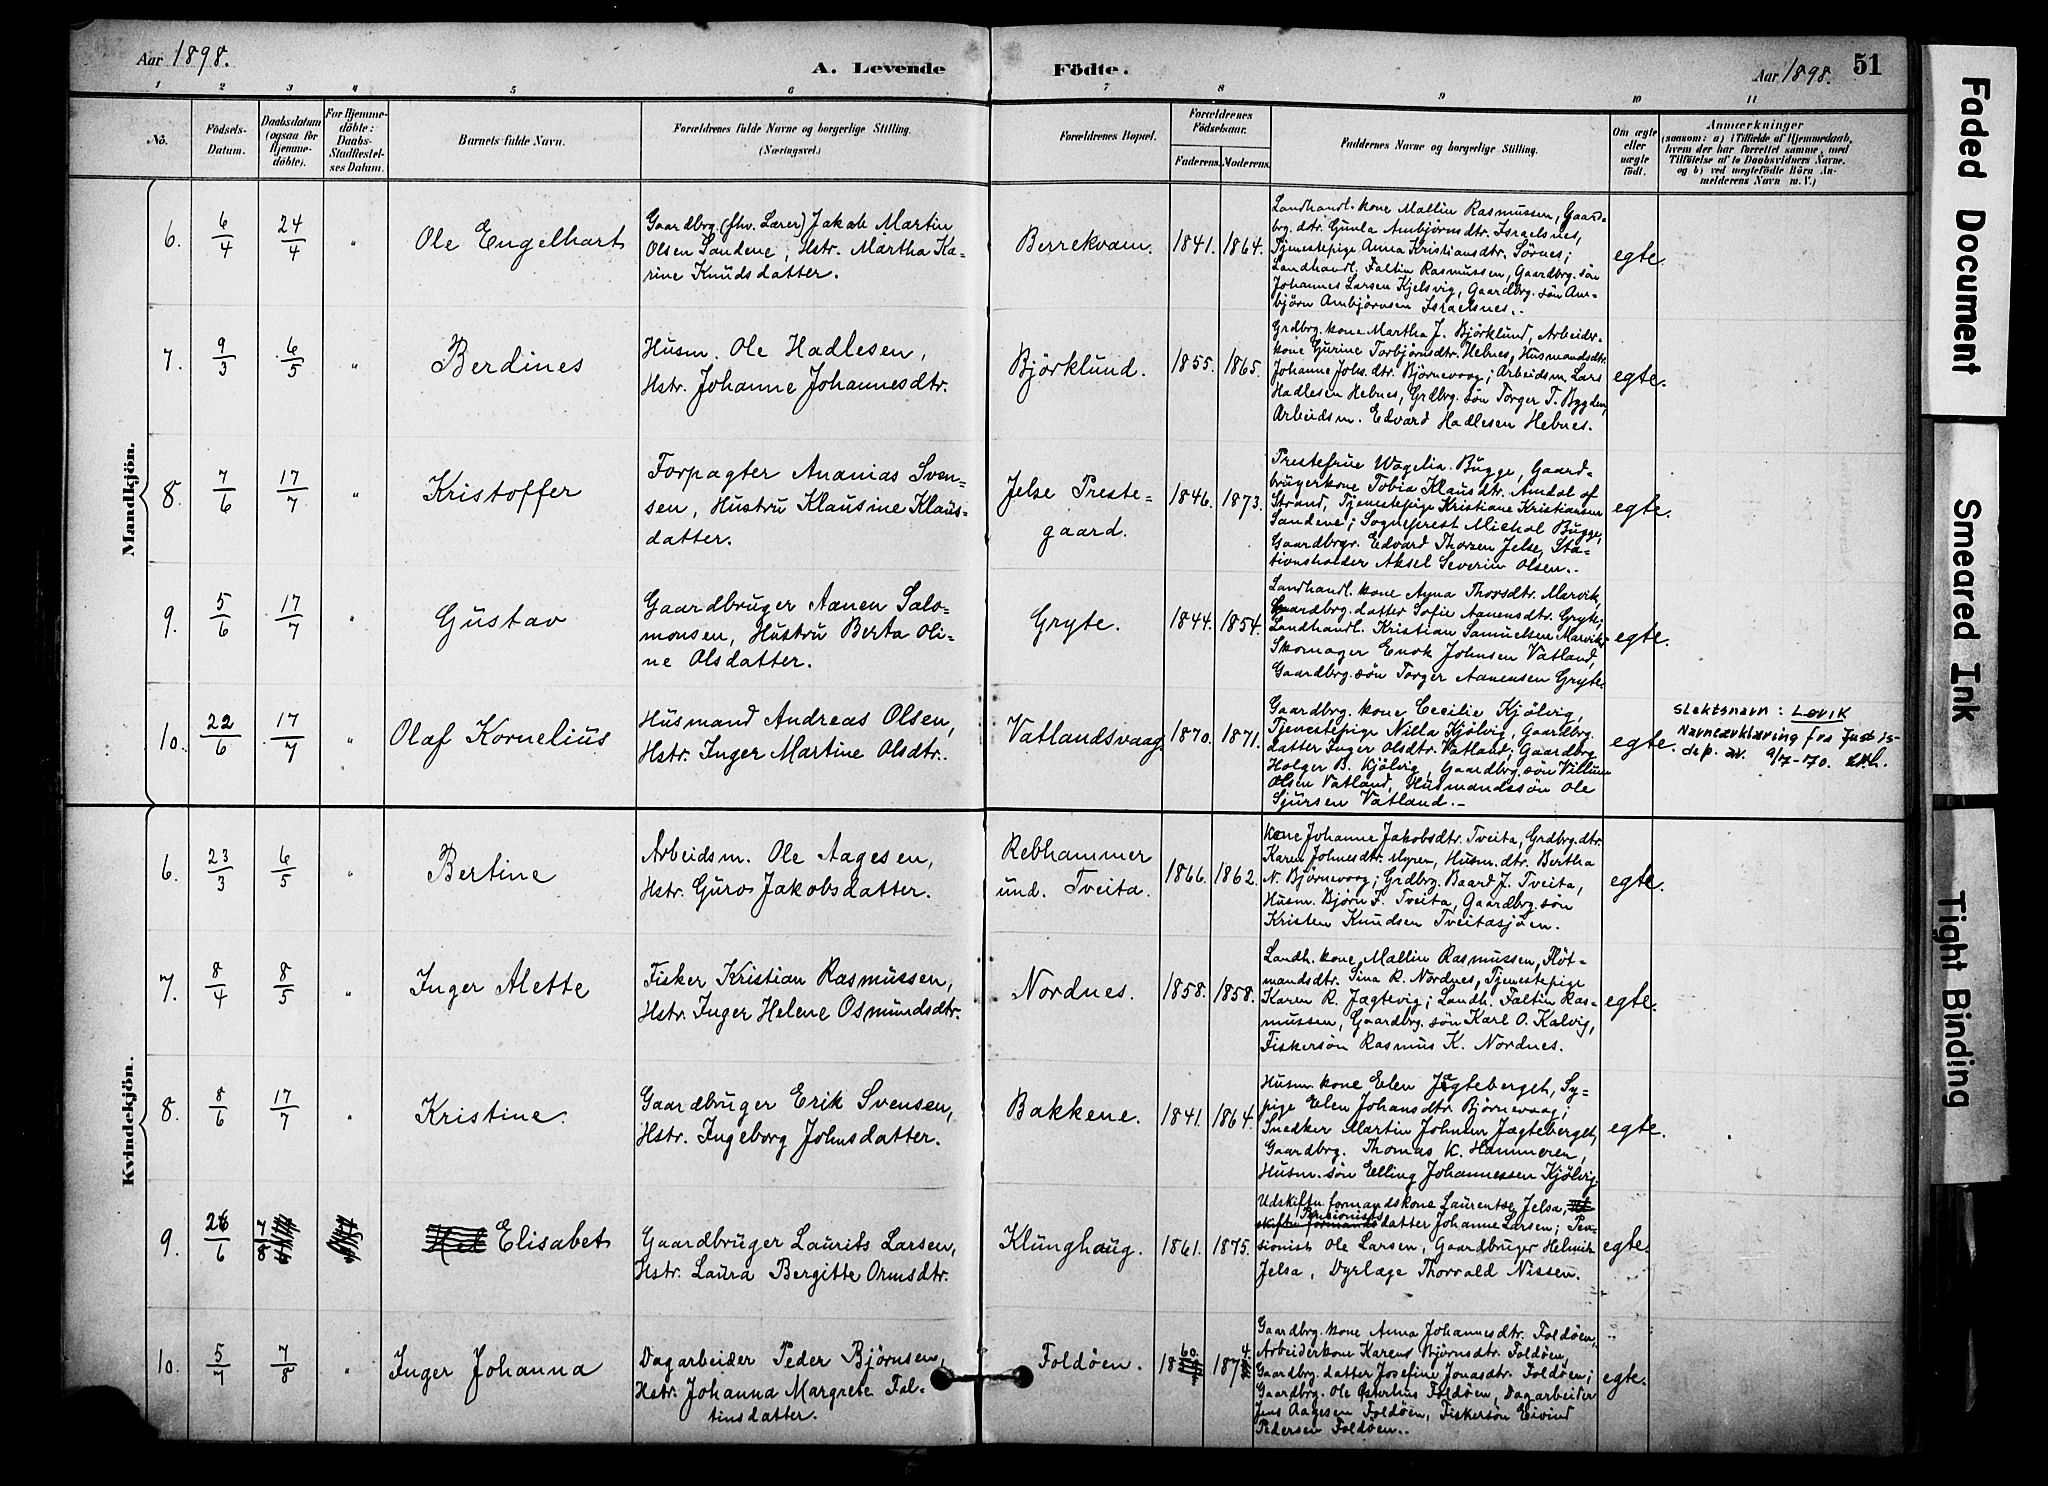 Aar 1898.
A. Levende Födte.
Aar 1898.
51
1 2 3 4 5 6 7 8 9 10 11
No.
Födsels-Datum.
Daabsdatum (ogsaa for Hjemme-döbte).
For Hjemme-döbte: Daabs-Stadfæstel-ses Datum.
Barnets fulde Navn.
Forældrenes fulde Navne og borgerlige Stilling.
(Næringsvei.)
Forældrenes Bopæl.
Forældrenes Födselsaar.
Faderens. Moderens.
Faddernes Navne og borgerlige Stilling.
Om ægte eller uægte födt.
Anmærkninger
(saasom: a) i Tilfælde af Hjemmedaab,
hvem der har forrettet samme, med
Tilföielse af to Daabsvidners Navne,
og b) ved uægtefödte Börn An-
melderens Navn m. V.)
Mandkjön.
6. 6/4 24/4 " Ole Engelhart
Gaardbrg. (fhv. Lærer) Jakob Martin
Olsen Sandene, Hstr. Martha Ka-
rine Knudsdatter.
Berrekvam. 1841. 1864.
Landhandl. kone Mallin Rasmussen, Gaard-
brg. dtr. Gunla Ambjørnsdtr. Israelsnes,
Tjenestepige Anna Kristiansdtr. Sørnes;
Landhandl. Faltin Rasmussen, Gaardbrg. søn
Johannes Larsen Kjelsvig, Gaardbrg. søn Am-
bjørn Ambjørnsen Israelsnes.
egte.
7. 9/3 6/5 " Berdines
Husm. Ole Hadlesen,
Hstr. Johanne Johannesdtr.
Björklund. 1855. 1865.
Grdbrg. kone Martha J. Björklund, Arbeider-
kone Gurine Torbjørnsdtr. Hebnes, Husmandsdtr.
Johanne Johs. dtr. Bjørnevaag; Arbeidsm. Lars
Hadlesen Hebnes, Grdbrg. søn Torger T. Bygden,
Arbeidsm. Edvard Hadlesen Hebnes.
egte.
8. 7/6 17/7 " Kristoffer
Forpagter Ananias Sven-
sen, Hustru Klausine Klaus-
datter.
Jelse Preste-
gaard.
1846. 1873.
Prestefrue Wogelia Bugge, Gaard-
brugerkone Tobia Klausdtr. Amdal af
Strand, Tjenestepige Kristiane Kristiansen
Sandene; Sogneprest Michal Bugge,
Gaardbrgr. Edvard Thorsen Jelse, Sta-
tionsholder Aksel Severin Olsen.
egte.
9. 5/6 17/7 " Gustav
Gaardbruger Aanen Salo-
monsen, Hustru Berta Oli-
ne Olsdatter.
Gryte. 1844. 1854.
Landhandl. kone Anna Thorsdtr. Marvik,
Gaardbrg. datter Sofie Aanensdtr. Gryte;
Landhandl. Kristian Samuelsen Marvik,
Skomager Enok Johnsen Vatland,
Gaardbrg. søn Torger Aanensen Gryte.
egte.
10. 22/6 17/7 " Olaf Kornelius
Husmand Andreas Olsen,
Hstr. Inger Martine Olsdtr.
Vatlandsvaag 1870. 1871.
Gaardbrg. kone Cecilie Kjølvig,
Tjenestepige Nilla Kjølvig, Gaardbrg.
datter Inger Olsdtr. Vatland; Gaardbrg.
Holger B. Kjølvig, Gaardbrg. søn Villum
Olsen Vatland, Husmandssøn Ole
Sjursen Vatland.
egte.
Slektsnavn: Løvik
Navneerklæring fra Justis-
dep. av 9/7-70.
Kvindekjön.
6. 23/3 6/5 " Bertine
Arbeidsm. Ole Aagesen,
Hstr. Guro Jakobsdatter.
Rebhammer
und. Tveita.
1866. 1862.
Kone Johanne Jakobsdtr. Tveita, Grdbrg. dtr.
Karen Johnsdtr. Myren, Husm. dtr. Bertha
N. Bjørnevaag; Grdbrg. Baard J. Tveita,
Husm. Bjørn F. Tveita, Gaardbrg. søn
Kristen Knudsen Tveitasjøen.
egte.
7. 8/4 8/5 " Inger Alette
Fisker Kristian Rasmussen,
Hstr. Inger Helene Osmundsdtr.
Nordnes. 1858. 1858.
Landh. kone Mallin Rasmussen, Fløt-
mandsdtr. Sina R. Nordnes, Tjenestepige
Karen R. Jægtevig; Landh. Faltin Ras-
mussen, Gaardbrg. søn Karl O. Kalvig,
Fiskersøn Rasmus K. Nordnes.
egte.
8. 8/6 17/7 " Kristine.
Gaardbruger Erik Svensen,
Hstr. Ingeborg Johnsdatter.
Bakkene. 1841. 1864.
Husm. kone Elen Jægteberget, Sy-
pige Elen Johansdtr. Bjørnevaag;
Snedker Martin Johnsen Jægteberget,
Gaardbrg. Thomas K. Hammeren,
Husm. søn Elling Johannessen Kjølvig.
egte.
9. 26/6 7/8 Elisabet
Gaardbruger Laurits Larsen,
Hstr. Laura Bergitte Ormsdtr.
Klunghaug. 1861. 1875.
Udskiftn. formandskone Laurentse Jelsa,
Pensionists datter Johanne Larsen; Pen-
sionist Ole Larsen, Gaardbruger Helmik
Jelsa, Dyrlæge Thorvald Nissen.
egte.
10. 5/7 7/8 " Inger Johanna
Dagarbeider Peder Bjørnsen,
Hstr. Johanna Margrete Fal-
tinsdatter.
Foldöen. 1860 1874
Gaardbrg. kone Anna Johannesdtr. Foldöen,
Arbeiderkone Karens Bjørnsdtr. Foldöen,
Gaardbrg. datter Josefine Jonasdtr. Foldöen;
Gaardbrg. Ole Østerhus Foldöen, Dagarbeider
Jens Aagesen Foldöen, Fiskersøn Eivind
Pedersen Foldöen.
egte.
Faded Document
Smeared Ink
Tight Binding